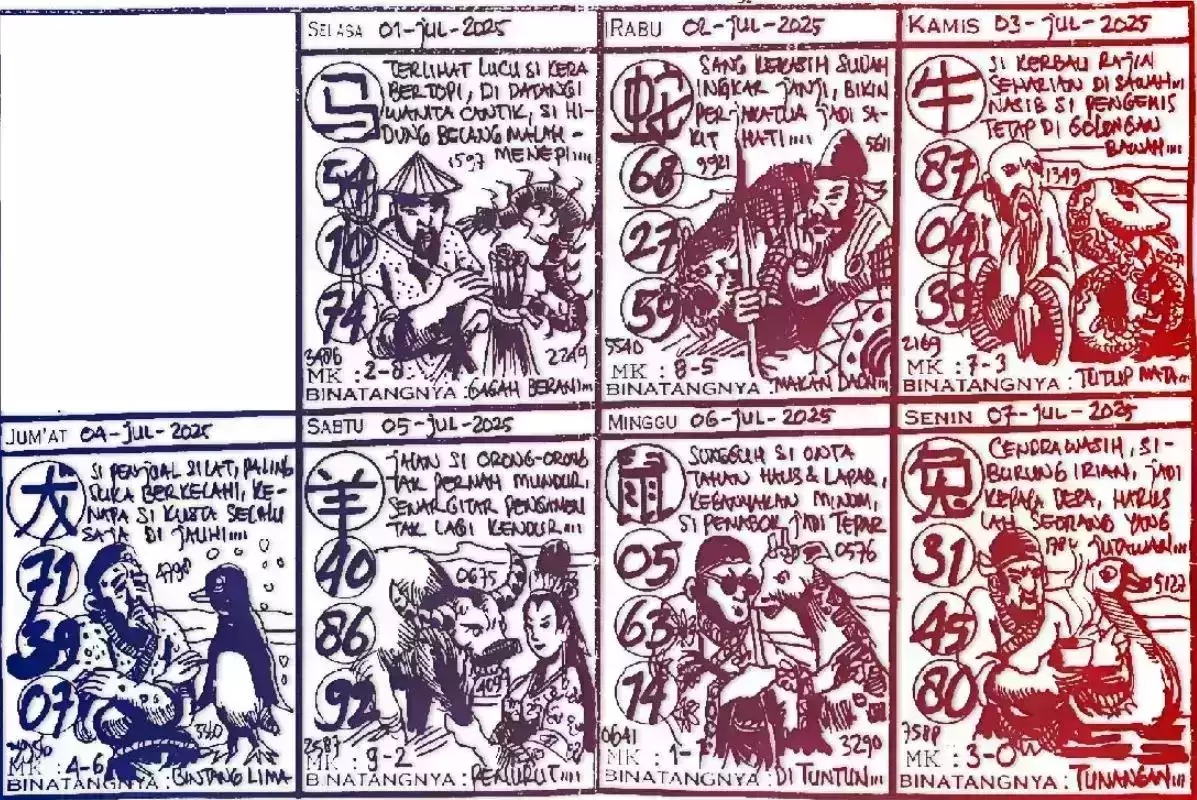 SELASA 01-JUL-2025
马
TERLIHAT LUCU SI KERA
BERTOPI, DI DATANGI
WANITA CANTIK, SI HI-
DUNG BELANG MALAH -
MENEPI....
1597
54
10
74
3486
2249
MK : 2-8
BINATANGNYA : GAGAH BERANI...
RABU 02-JUL-2025
蛇
SANG KEKASIH SUDAH
INGKAR JANJI, BIKIN
PERJAKA TUA JADI SA-
KIT HATI....
9921
5611
68
27
59
5540
MK : 8-5
BINATANGNYA : MAKAN DAON...
KAMIS 03-JUL-2025
牛
SI KERBAU RAJIN
SEHARIAN DI SAWAH...
NASIB SI PENGEMIS
TETAP DI GOLONGAN
BAWAH....
1349
87
04
39
2169
MK : 7-3
BINATANGNYA : TUTUP MATA...
JUM'AT 04-JUL-2025
犬
SI PENJUAL SILAT, PALING
SUKA BERKELAHI, KE-
NAPA SI KUSTA SELALU
SAJA DI JAUHI....
4790
71
39
07
MK : 4-6
BINATANGNYA : BINTANG LIMA
SABTU 05-JUL-2025
羊
JALAN SI ORONG-ORONG
TAK PERNAH MUNDUR,
SENAR GITAR PENGAMEN
TAK LAGI KENDUR....
0675
40
86
92
4099
2587
MK : 9-2
BINATANGNYA : PENURUT....
MINGGU 06-JUL-2025
鼠
SUNGGUH SI ONTA
TAHAN HAUS & LAPAR,
KEBANYAKAN MINUM,
SI PENABOK JADI TEPAR
0576
05
63
14
0641
3290
MK : 1-7
BINATANGNYA : DI TUNTUN...
SENIN 07-JUL-2025
兔
CENDRAWASIH, SI-
BURUNG IRIAN, JADI
KEPALA DESA, HARUS
LAH SEORANG YANG
JUTAWAN...
9127
31
45
80
7588
MK : 3-0
BINATANGNYA : TUNANGAN...